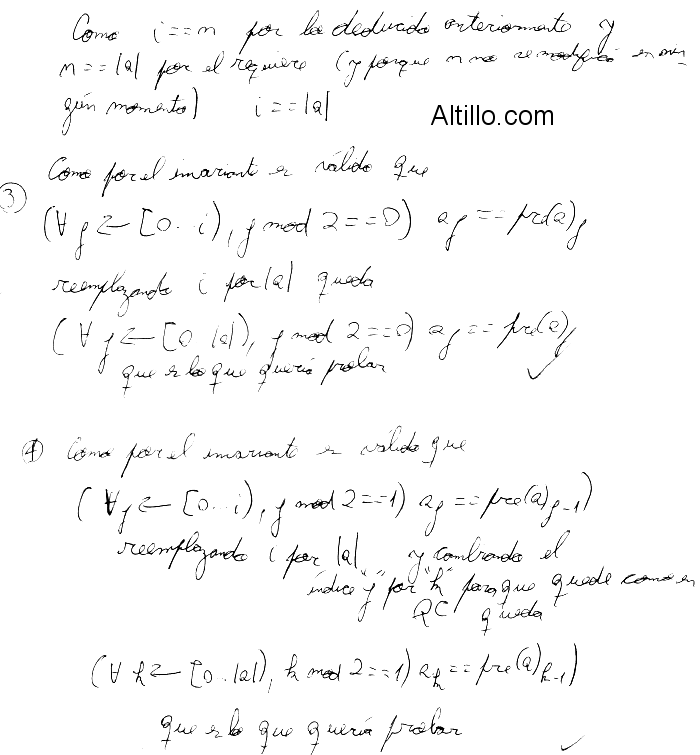 Como i==n por lo deducido anteriormente y
n==|a| por el requiere (y porque n no se modificó en nin-
gún momento) i==|a|
Altillo.com
Como por el invariante es válido que
③
(∀ j ← [0..i), j mod 2==0) aj == pre(a)j
reemplazando i por |a| queda
(∀ j ← [0..|a|), j mod 2==0) aj == pre(a)j
que es lo que quería probar ✓
④ Como por el invariante es válido que
(∀ j ← [0..i), j mod 2==1) aj == pre(a)j-1)
reemplazando i por |a| y cambiando el
índice "j" por "k" para que quede como en
QC queda
(∀ k ← [0..|a|), k mod 2==1) ak == pre(a)k-1)
que es lo que quería probar ✓